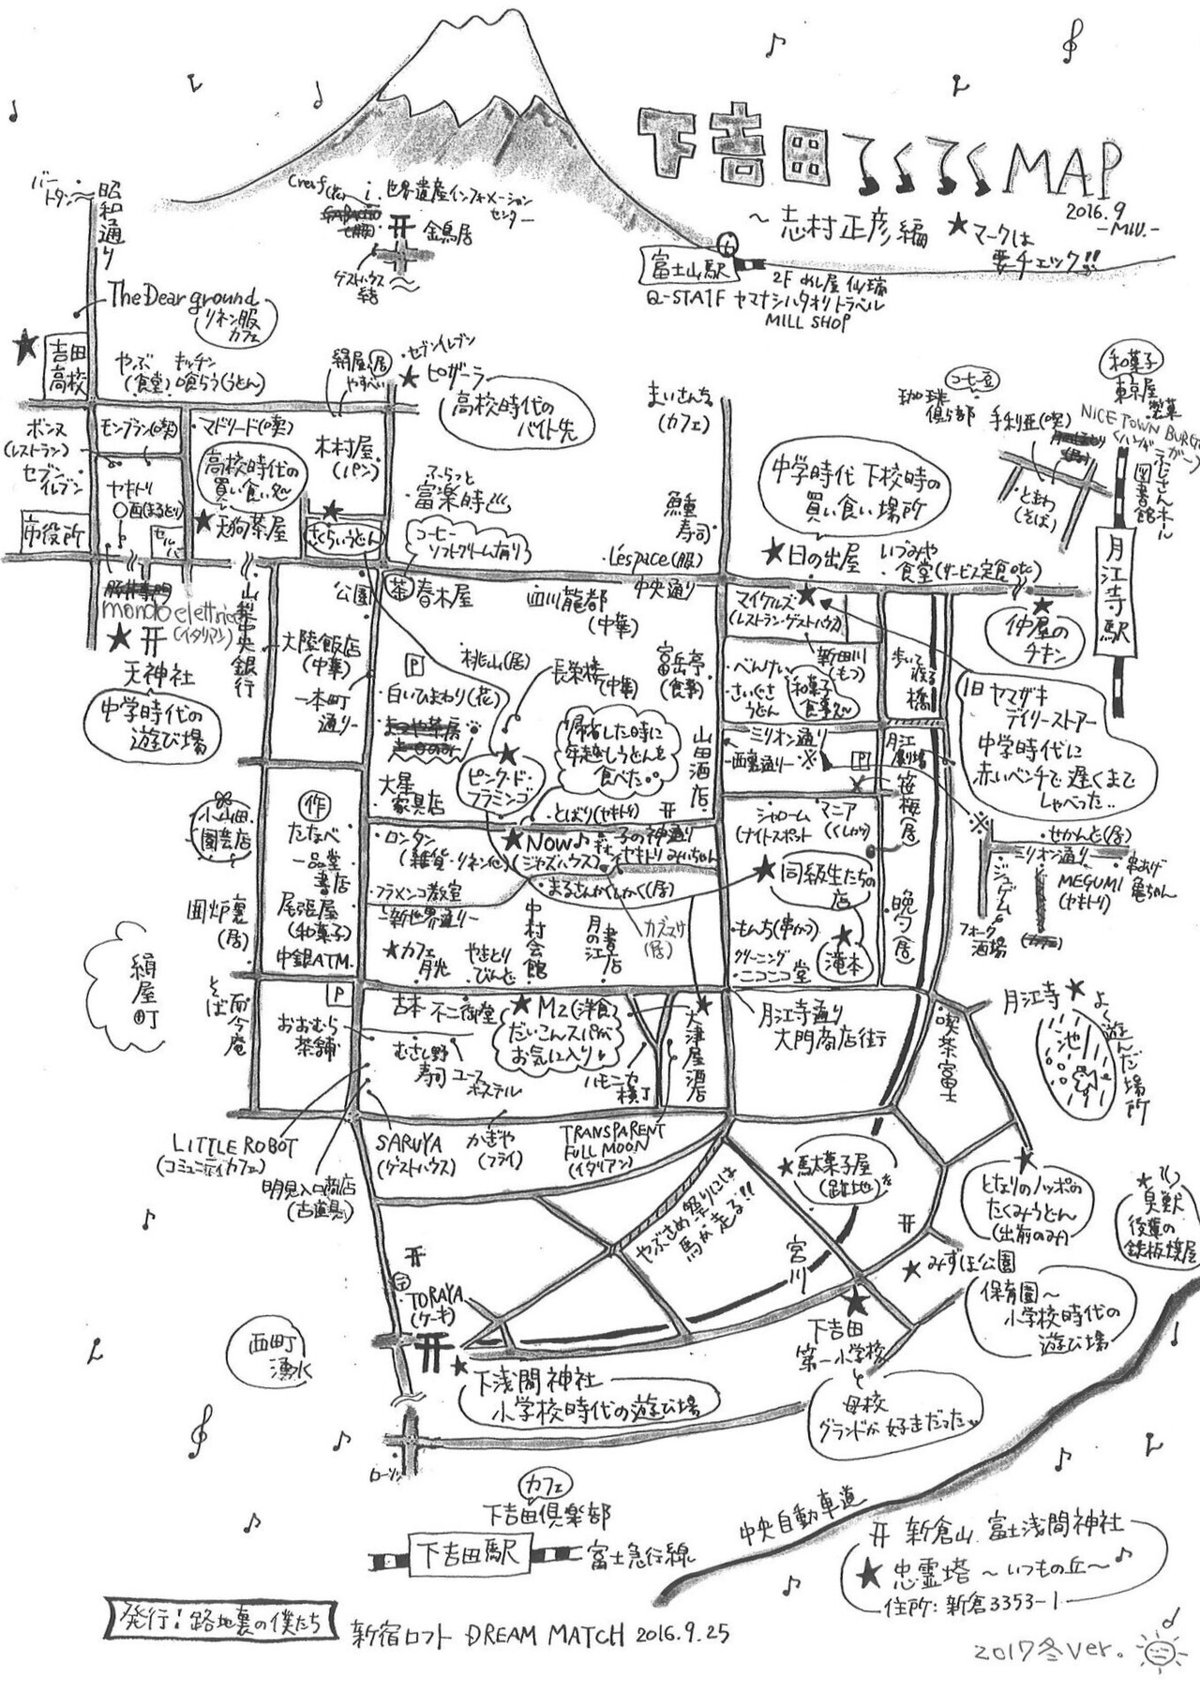 下吉田てくてくMAP
2016.9
-MIU.-
～志村正彦編
★マークは
要チェック!!
バー
トタン～
昭和通り
i. 世界遺産インフォメーション
センター
金鳥居
ゲストハウス
結
富士山駅
2F めし屋 仙瑞
Q-STAIF ヤマナシハタオリトラベル
MILL SHOP
The Dear ground
リネン服
カフェ
★
吉田
高校
やぶ
(食堂)
キッチン
喰らう(うどん)
絹屋(居)
やすべい
・セブンイレブン
★ピザーラ
高校時代の
バイト先
まいさんち
(カフェ)
コーヒー豆
珈琲
倶楽部
手利亜(喫)
和菓子
東京屋
製菓
NICE TOWN BURGER
(ハンバーガー)
ふじさんホール
図書館
・ともわ
(そば)
月江寺駅
ボンヌ
(レストラン)
モンブラン(喫)
・マドリード(喫)
セブン
イレブン
ヤキトリ
〇酉(まるとり)
高校時代の
買い食い処～
木村屋
(パン)
市役所
セルバ
★天狗茶屋
★
さくらいうどん
ふらっと
富楽時
コーヒー
ソフトクリーム有り
鱣
寿司
・L'espace(服)
中学時代 下校時の
買い食い場所
★日の出屋
いづみや
食堂(サービス定食etc)
mondo elettrico
(イタリアン)
山梨中央
銀行
公園
茶 春木屋
四川龍都
(中華)
中央通り
マイケルズ
(レストラン・ゲストハウス)
★
仲屋の
チキン
★
天神社
中学時代の
遊び場
大陸飯店
(中華)
一本町
通り
P
桃山(居)
・白いひまわり(花)
長栄楼
(中華)
富岳亭
(食事)
・べんけい
・さいぐさ
うどん
新田川
(もつ)
和菓子
食事処～
歩いて渡る
橋
旧 ヤマザキ
デイリーストアー
中学時代に
赤いベンチで遅くまで
しゃべった..
帰省した時に
年越しうどんを
食べた
山田酒店
ミリオン通り
西裏通り
P
月江
劇場
★
ピンク・ド・
フラミンゴ
大星
家具店
・とばり(ヤキトリ)
小山田
園芸店
作
たなべ
一品堂
書店
・ロンタン
(雑貨・リネン他)
★NOW♪
(ジャズハウス)
子の神通り
ヤキトリみぃちゃん
シャローム
(ナイトスポット
マニア
(くしかつ)
笹梅(居)
・せかんど(居)
ミリオン通り
MEGUMI
(ヤキトリ)
串あげ
亀ちゃん
ジュゲム
フォーク
酒場
フラメンコ教室
新世界通り
・まるさんかくしかく(居)
★
同級生たちの
店
囲炉裏
(居)
尾張屋
(和菓子)
中銀ATM.
★カフェ
月光
やきとり
びんと
中村会館
月の江
書店
カズサ
(居)
・もんち(串かつ)
クリーニング
・ニコニコ堂
★
滝本
晩夕(居)
絹屋町
そば
面今庵
P
おおむら
茶舗
古本 不二御堂
むさし野
寿司
ユース
ホステル
★M2(洋食)
だいこんスパが
お気に入り
ハモニカ
横丁
★
大津屋酒店
月江寺通り
大門商店街
・喫茶富士
月江寺★
よく遊んだ場所
池
LITTLE ROBOT
(コミュニティカフェ)
明見入口商店
(古道具)
SARUYA
(ゲストハウス)
かぎや
(フライ)
TRANSPARENT
FULL MOON
(イタリアン)
やぶさめ祭りには
馬が走る!!
★駄菓子屋
(跡地)
★
となりのノッポの
たくみうどん
(出前のみ)
★
臭獣
後輩の
鉄板焼屋
宮川
★みずほ公園
保育園～
小学校時代の
遊び場
TORAYA
(ケーキ)
★
下浅間神社
小学校時代の遊び場
★
下吉田
第一小学校
と
母校
グランドが好きだった
西町
湧水
ローソン
カフェ
下吉田倶楽部
下吉田駅
富士急行線
中央自動車道
新倉山 富士浅間神社
★忠霊塔 ～いつもの丘～
住所：新倉3353-1
発行：路地裏の僕たち
新宿ロフト DREAM MATCH 2016.9.25
2017冬ver.